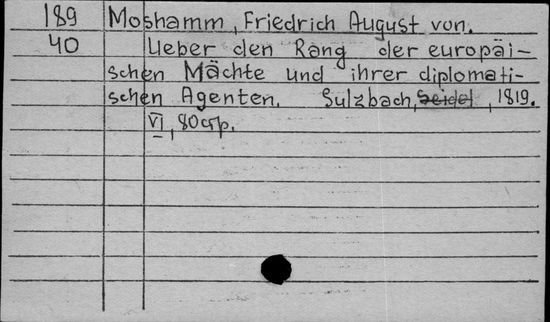 189 Moshamm, Friedrich August von.
40 Ueber den Rang der europäi-
schen Mächte und ihrer diplomati-
schen Agenten. Sulzbach, Seidel, 1819.
VI, 80 стр.